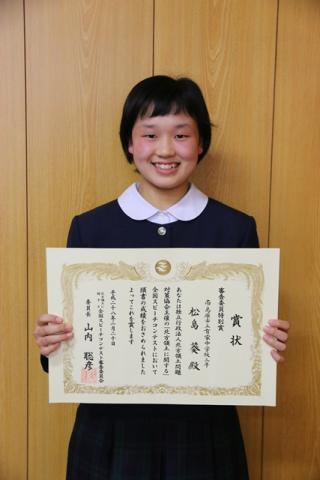 賞状
審査委員特別賞
南島原市立有家中学校三年
松島 葵 殿
あなたは独立行政法人北方領土問題
対策協会主催の「北方領土に関する
全国スピーチコンテスト」において
頭書の成績をおさめられました
よってこれを賞します
平成二十八年二月二十日
全国スピーチコンテスト審査委員会
委員長 山内 聡彦